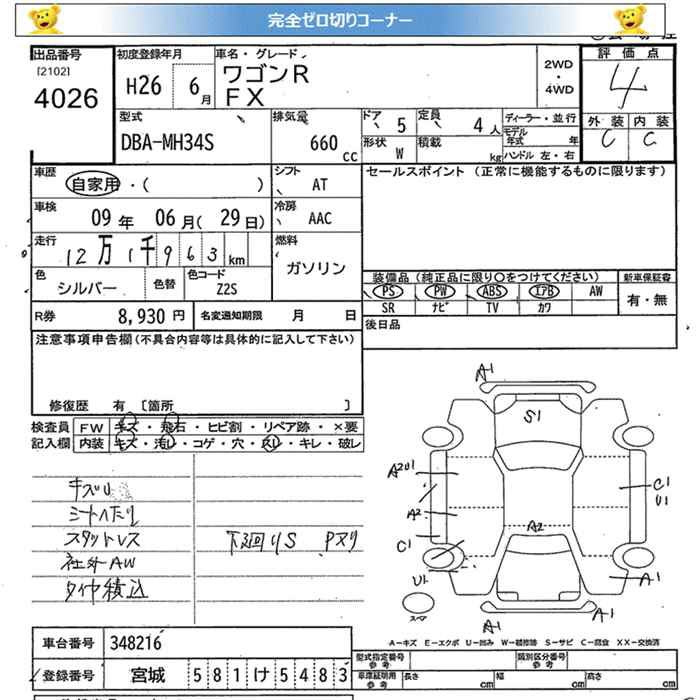 完全ゼロ切りコーナー
出品番号
[2102]
4026
初度登録年月
H26 6月
車名・グレード
ワゴンR
FX
2WD
・
4WD
評価点
4
外装 内装
C C
型式
DBA-MH34S
排気量
660
cc
ドア 5
定員 4人
形状 W
積載 kg
ディーラー・並行
モデル年式 年
ハンドル 左・右
車歴
自家用・( )
シフト
AT
車検
09年 06月(29日)
冷房
AAC
走行
12万1千963km
燃料
ガソリン
色
シルバー
色替
色コード
Z2S
R券 8,930円
名変通知期限 月 日
セールスポイント (正常に機能するものに限ります)
装備品 (純正品に限り〇をつけてください)
PS PW ABS エアB AW
SR ナビ TV カワ
新車保証書
有・無
後日品
注意事項申告欄(不具合内容等は具体的に記入して下さい)
修復歴 有 〔箇所 〕
検査員
記入欄
FW キズ・飛石・ヒビ割・リペア跡・×要
内装 キズ・汚レ・コゲ・穴・スレ・キレ・破レ
キズU
シートヘタリ
スタットレス
社外AW
タイヤ積込
下廻りS Pヌリ
A1
S1
A2U1
A2
C1
U1
C1
U1
A2
A1
A1
A1
スペア
A=キズ E=エクボ U=凹み W=補修跡 S=サビ C=腐食 XX=交換済
車台番号 348216
登録番号 宮城 581け5483
型式指定番号
参考
類別区分番号
参考
車庫証明用
参考
長さ cm 幅 cm 高さ cm